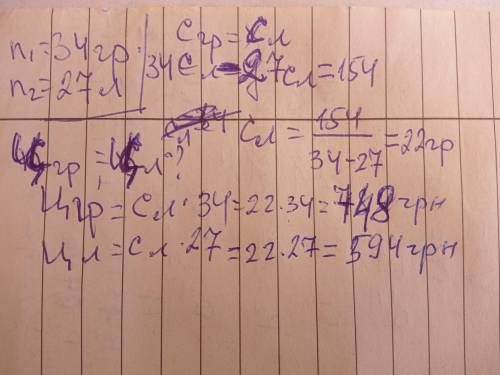 n₁=34гр
n₂=27л
Cгр=Cл
34Cл-27Cл=154
Cл=154/34-27=22гр
Цгр=Цл?
Цгр=Cл·34=22·34=748грн
Цл=Cл·27=22·27=594грн